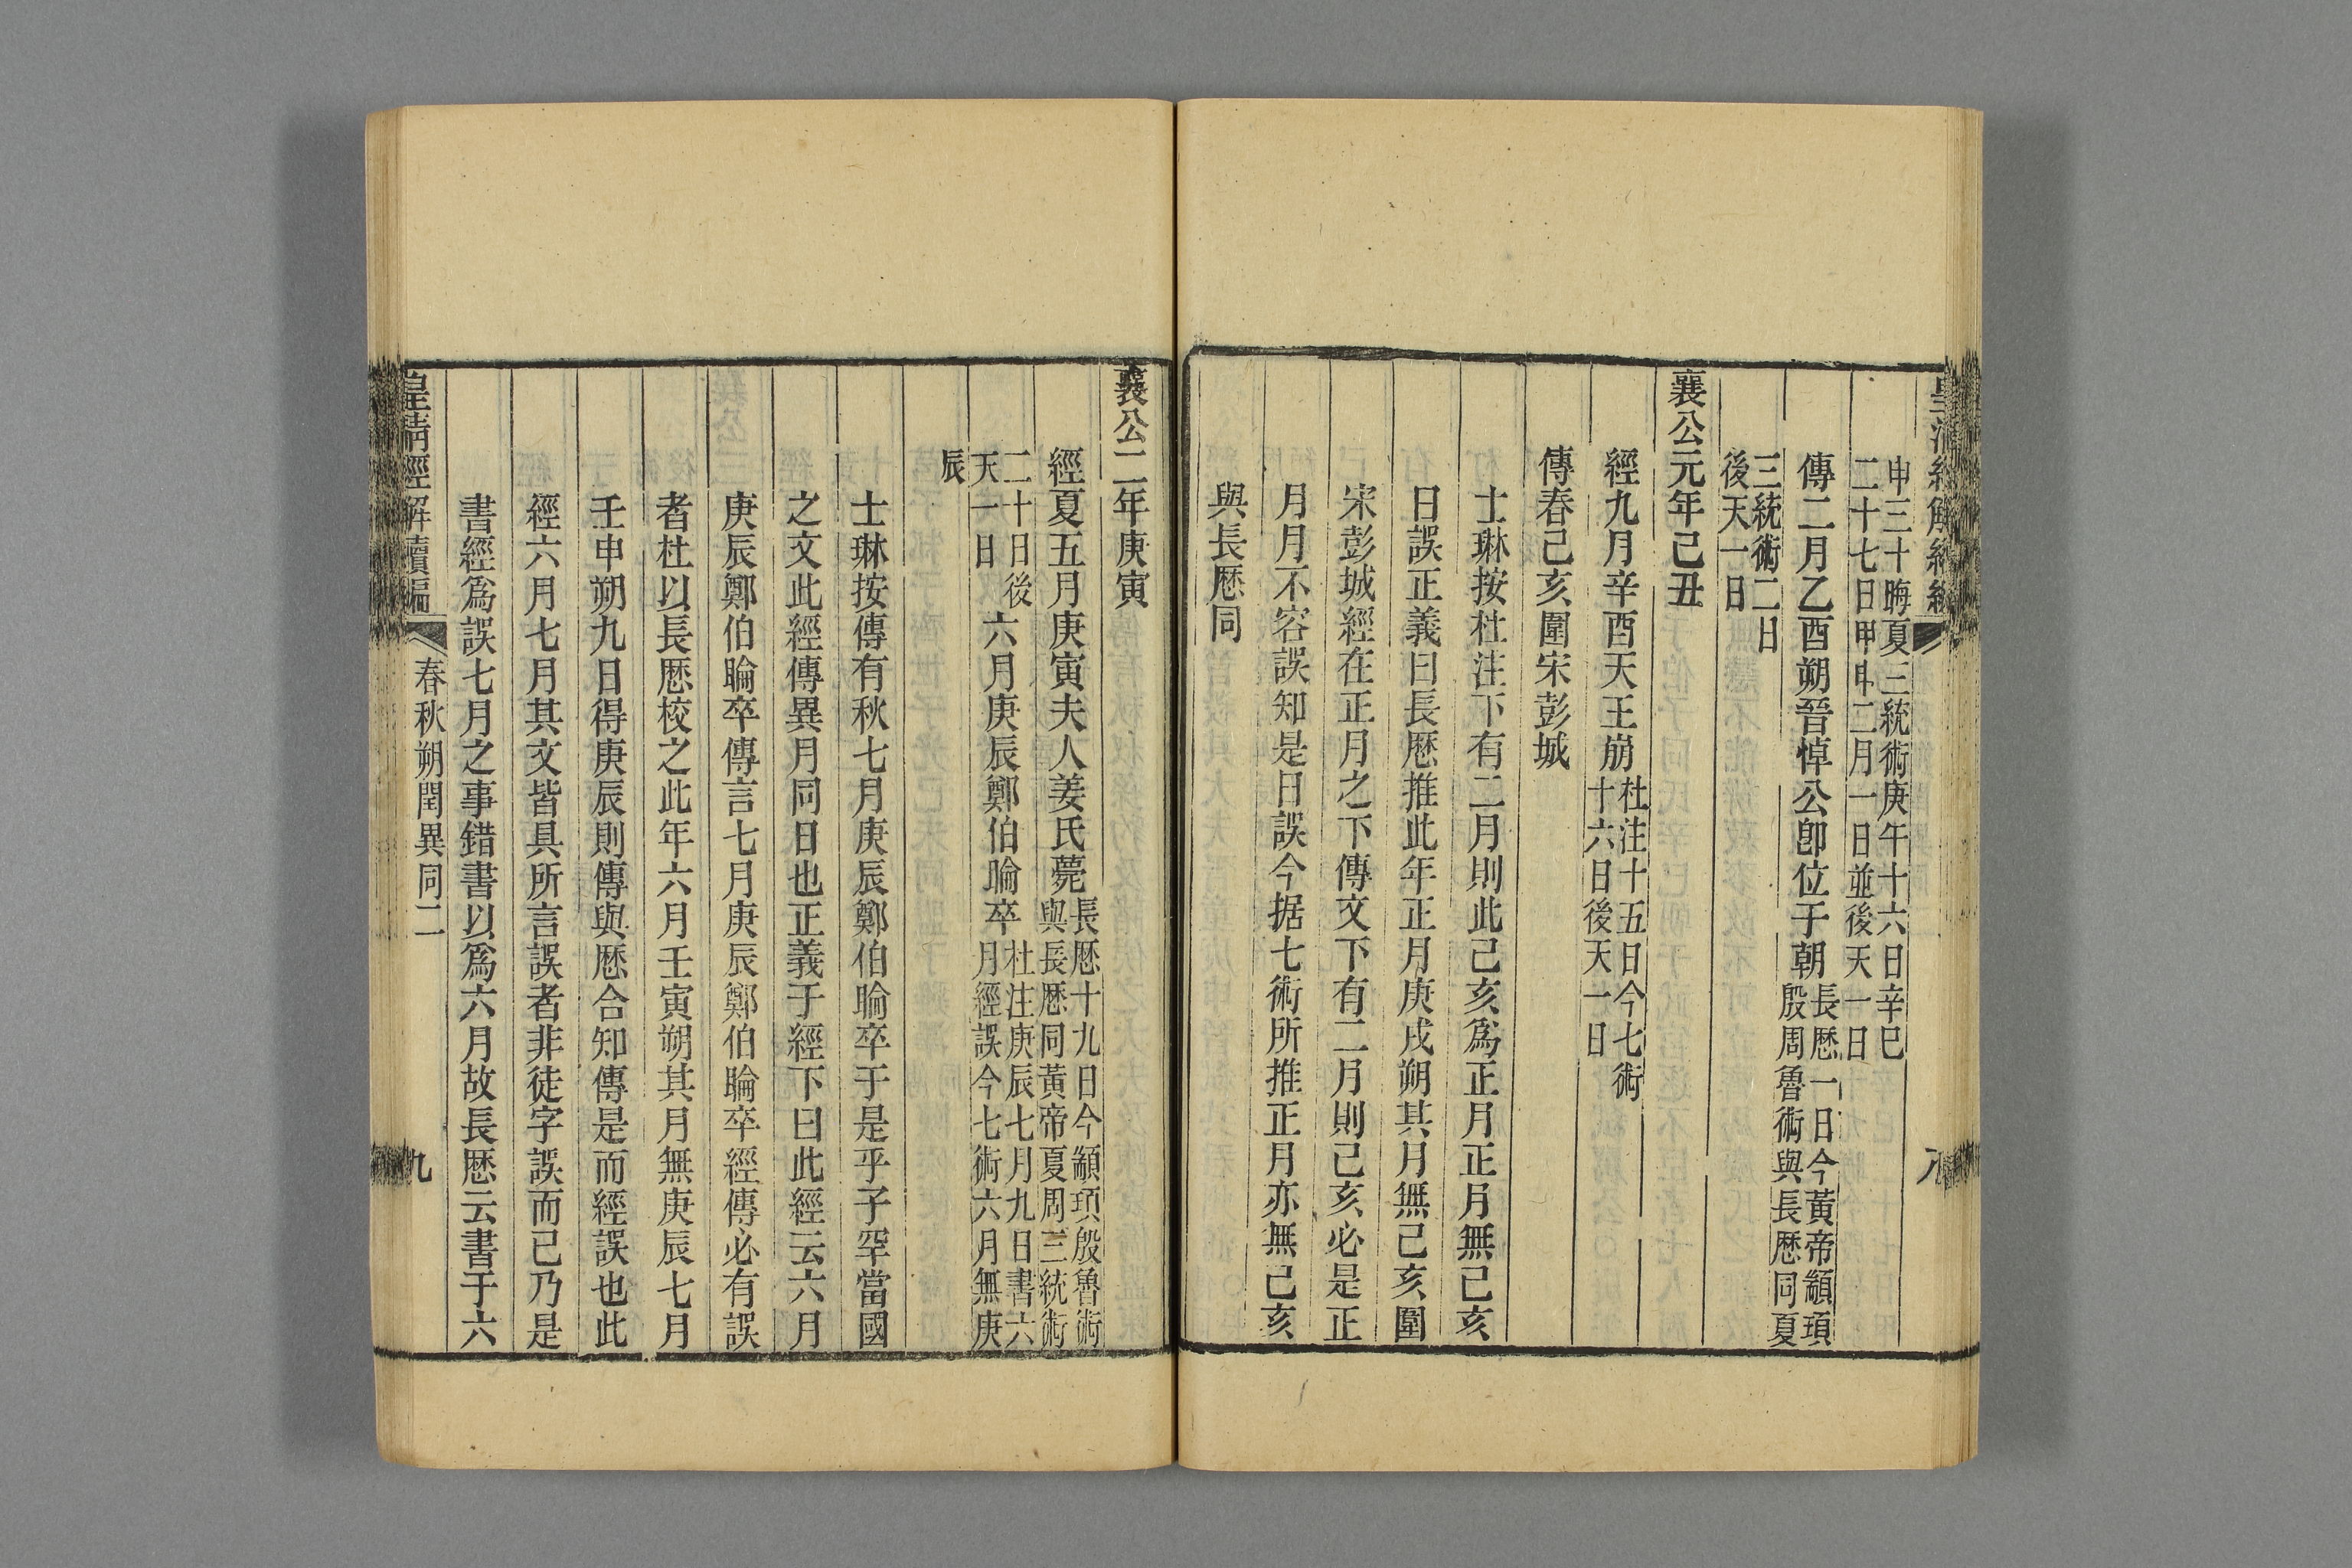 申三十晦夏三統術庚午十六日辛巳
二十七日甲申二月一日並後天一日
傳二月乙酉朔晉悼公卽位于朝長厯一日今黃帝顓頊
殷周魯術與長厯同夏
三統術二日
後天一日
襄公元年己丑
經九月辛酉天王崩杜注十五日今七術
十六日後天一日
傳春己亥圍宋彭城
士琳按杜注下有二月則此己亥爲正月正月無己亥
日誤正義曰長厯推此年正月庚戌朔其月無己亥圍
宋彭城經在正月之下傳文下有二月則己亥必是正
月月不容誤知是日誤今据七術所推正月亦無己亥
與長厯同
八
襄公二年庚寅
經夏五月庚寅夫人姜氏薨長厯十九日今顓頊殷魯術
與長厯同黃帝夏周三統術
二十日後
天一日
六月庚辰鄭伯睔卒杜注庚辰七月九日書六
月經誤今七術六月無庚
辰
士琳按傳有秋七月庚辰鄭伯睔卒于是乎子罕當國
之文此經傳異月同日也正義于經下曰此經云六月
庚辰鄭伯睔卒傳言七月庚辰鄭伯睔卒經傳必有誤
者杜以長厯校之此年六月壬寅朔其月無庚辰七月
壬申朔九日得庚辰則傳與厯合知傳是而經誤也此
經六月七月其文皆具所言誤者非徒字誤而已乃是
書經爲誤七月之事錯書以爲六月故長厯云書于六
皇清經解續編
春秋朔閏異同二
九